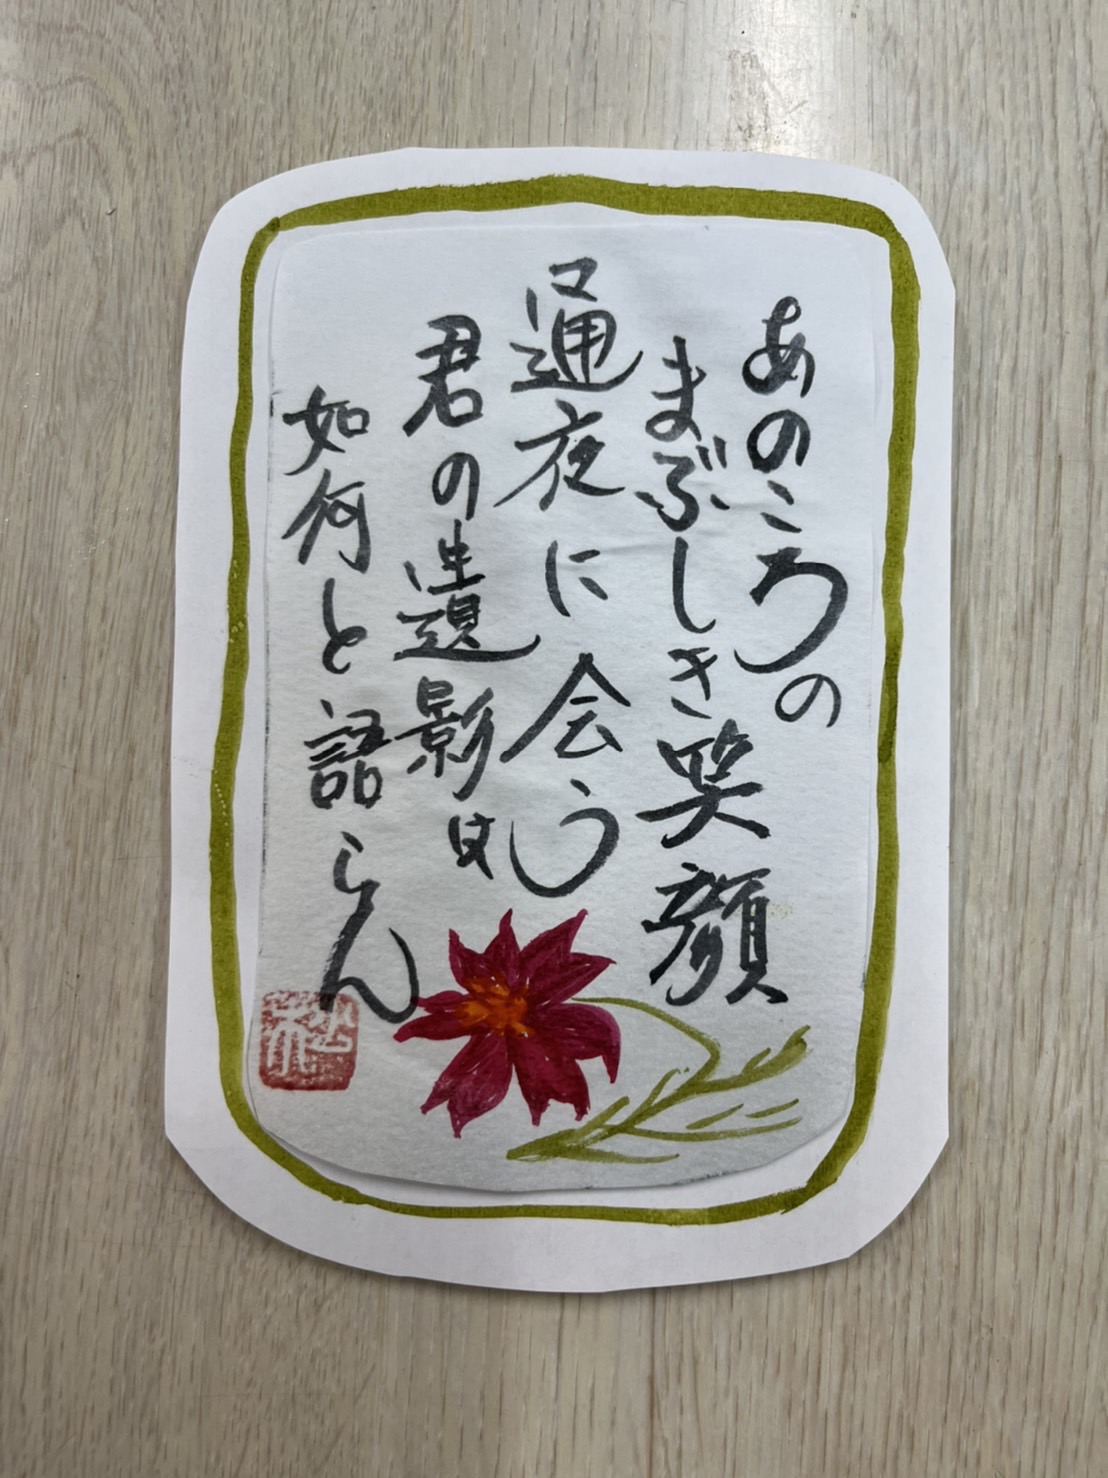 あのころの
まぶしき笑顔
通夜に会う
君の遺影は
如何と語らん
松